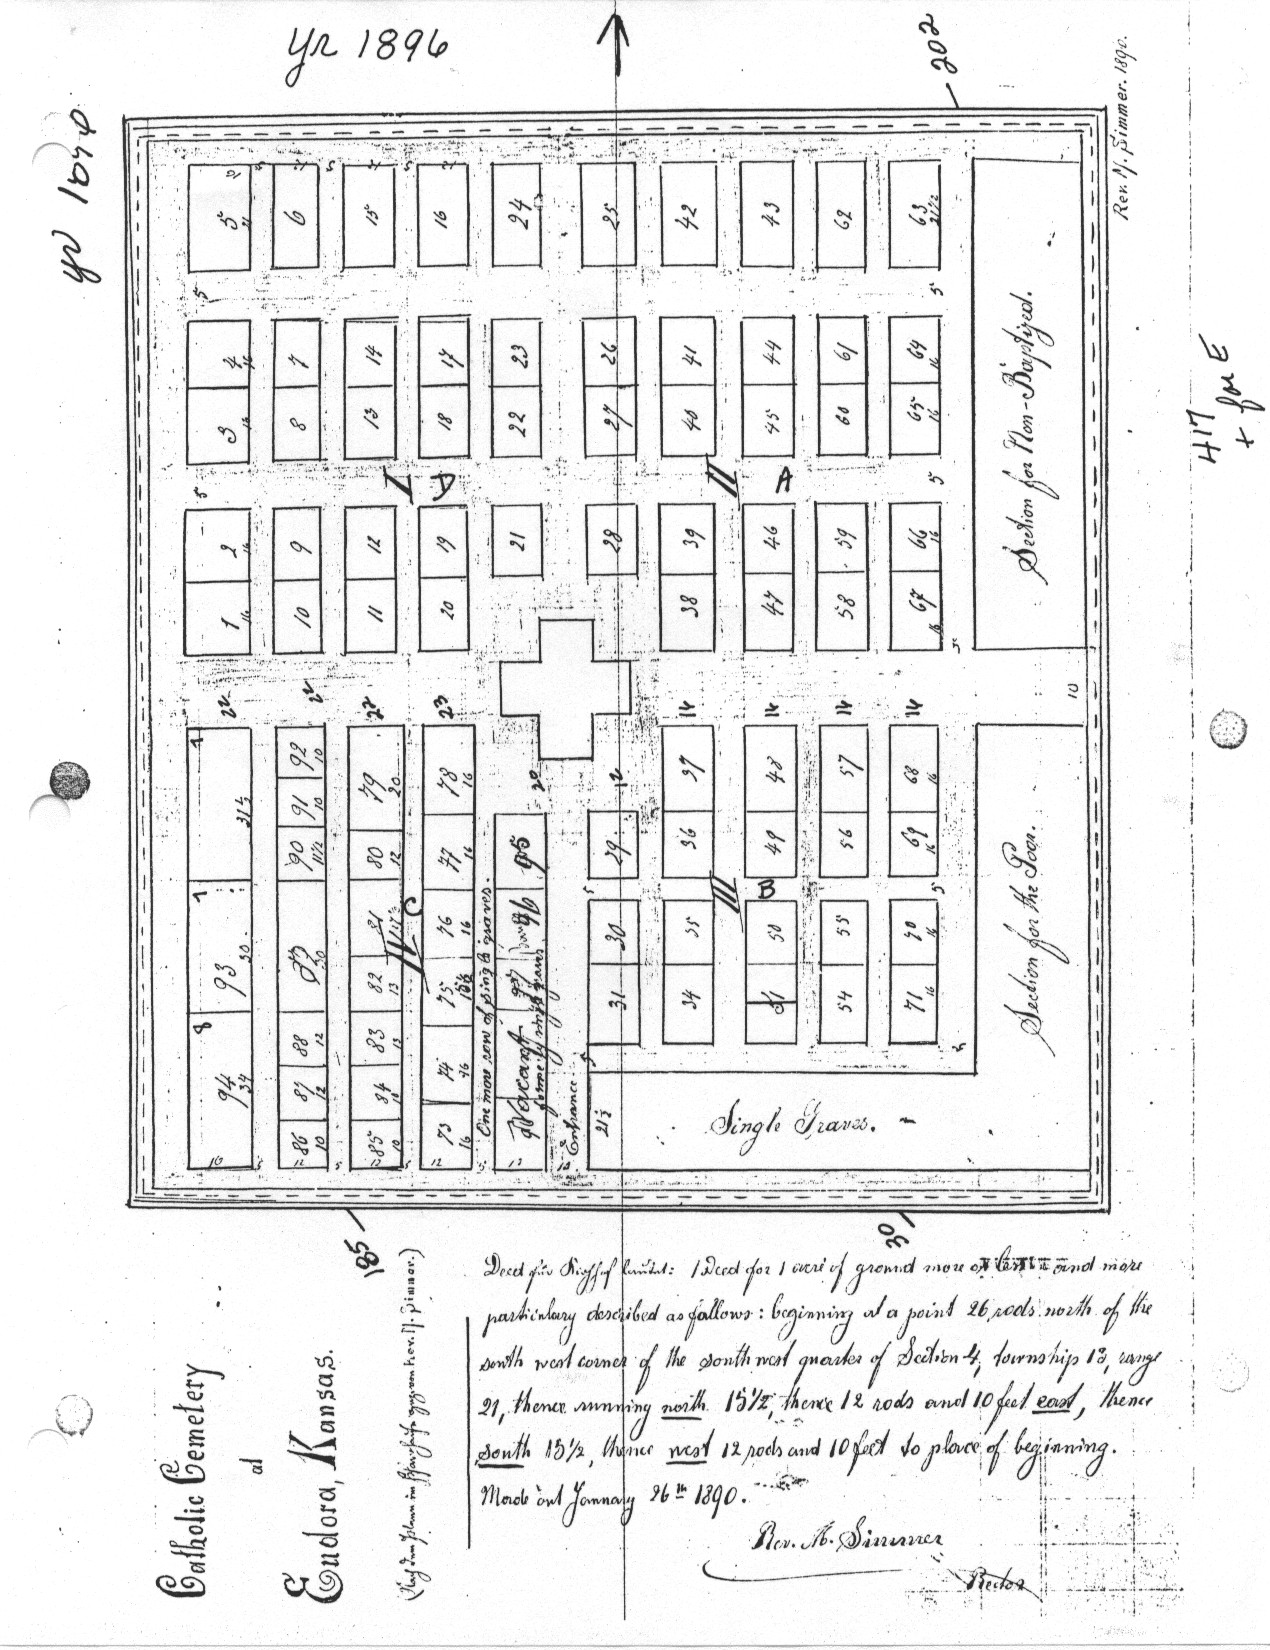 yr 1896
202
Rev. N. Simmer. 1890.
5
6
15
16
24
25
42
43
62
63
21 1/2
5
5
4
16
7
14
17
23
26
41
44
61
64
16
3
16
8
13
18
22
27
40
45
60
65
16
Section for Non-Baptized.
417
+ for E
5
I
D
II
A
5
2
16
9
12
19
21
28
39
46
59
66
16
1
16
10
11
20
38
47
58
67
16
22
22
22
23
14
14
14
14
10
31½
92
10
91
10
90
11½
79
20
80
12
78
16
77
16
20
12
95
29
37
36
48
49
57
56
68
16
69
16
IV
C
III
B
5
93
30
94
34
8
88
12
87
12
86
10
82
13
83
13
84
10
85
10
76
16
75
74
16
73
16
One more row of single graves.
96
Vacant
97
formerly single graves
30
31
35
34
50
51
55
54
70
16
71
16
Section for the Poor.
Entrance
21½
Single Graves.
185
30
Catholic Cemetery
at
Eudora, Kansas.
Deed for 1 acre of ground more or less and more
particulary described as follows: beginning at a point 26 rods north of the
south west corner of the southwest quarter of Section 4, township 13, range
21, thence running north 15½, thence 12 rods and 10 feet east, thence
south 15½, thence west 12 rods and 10 feet to place of beginning.
Made out January 26th 1890.
Rev. N. Simmer
Rector